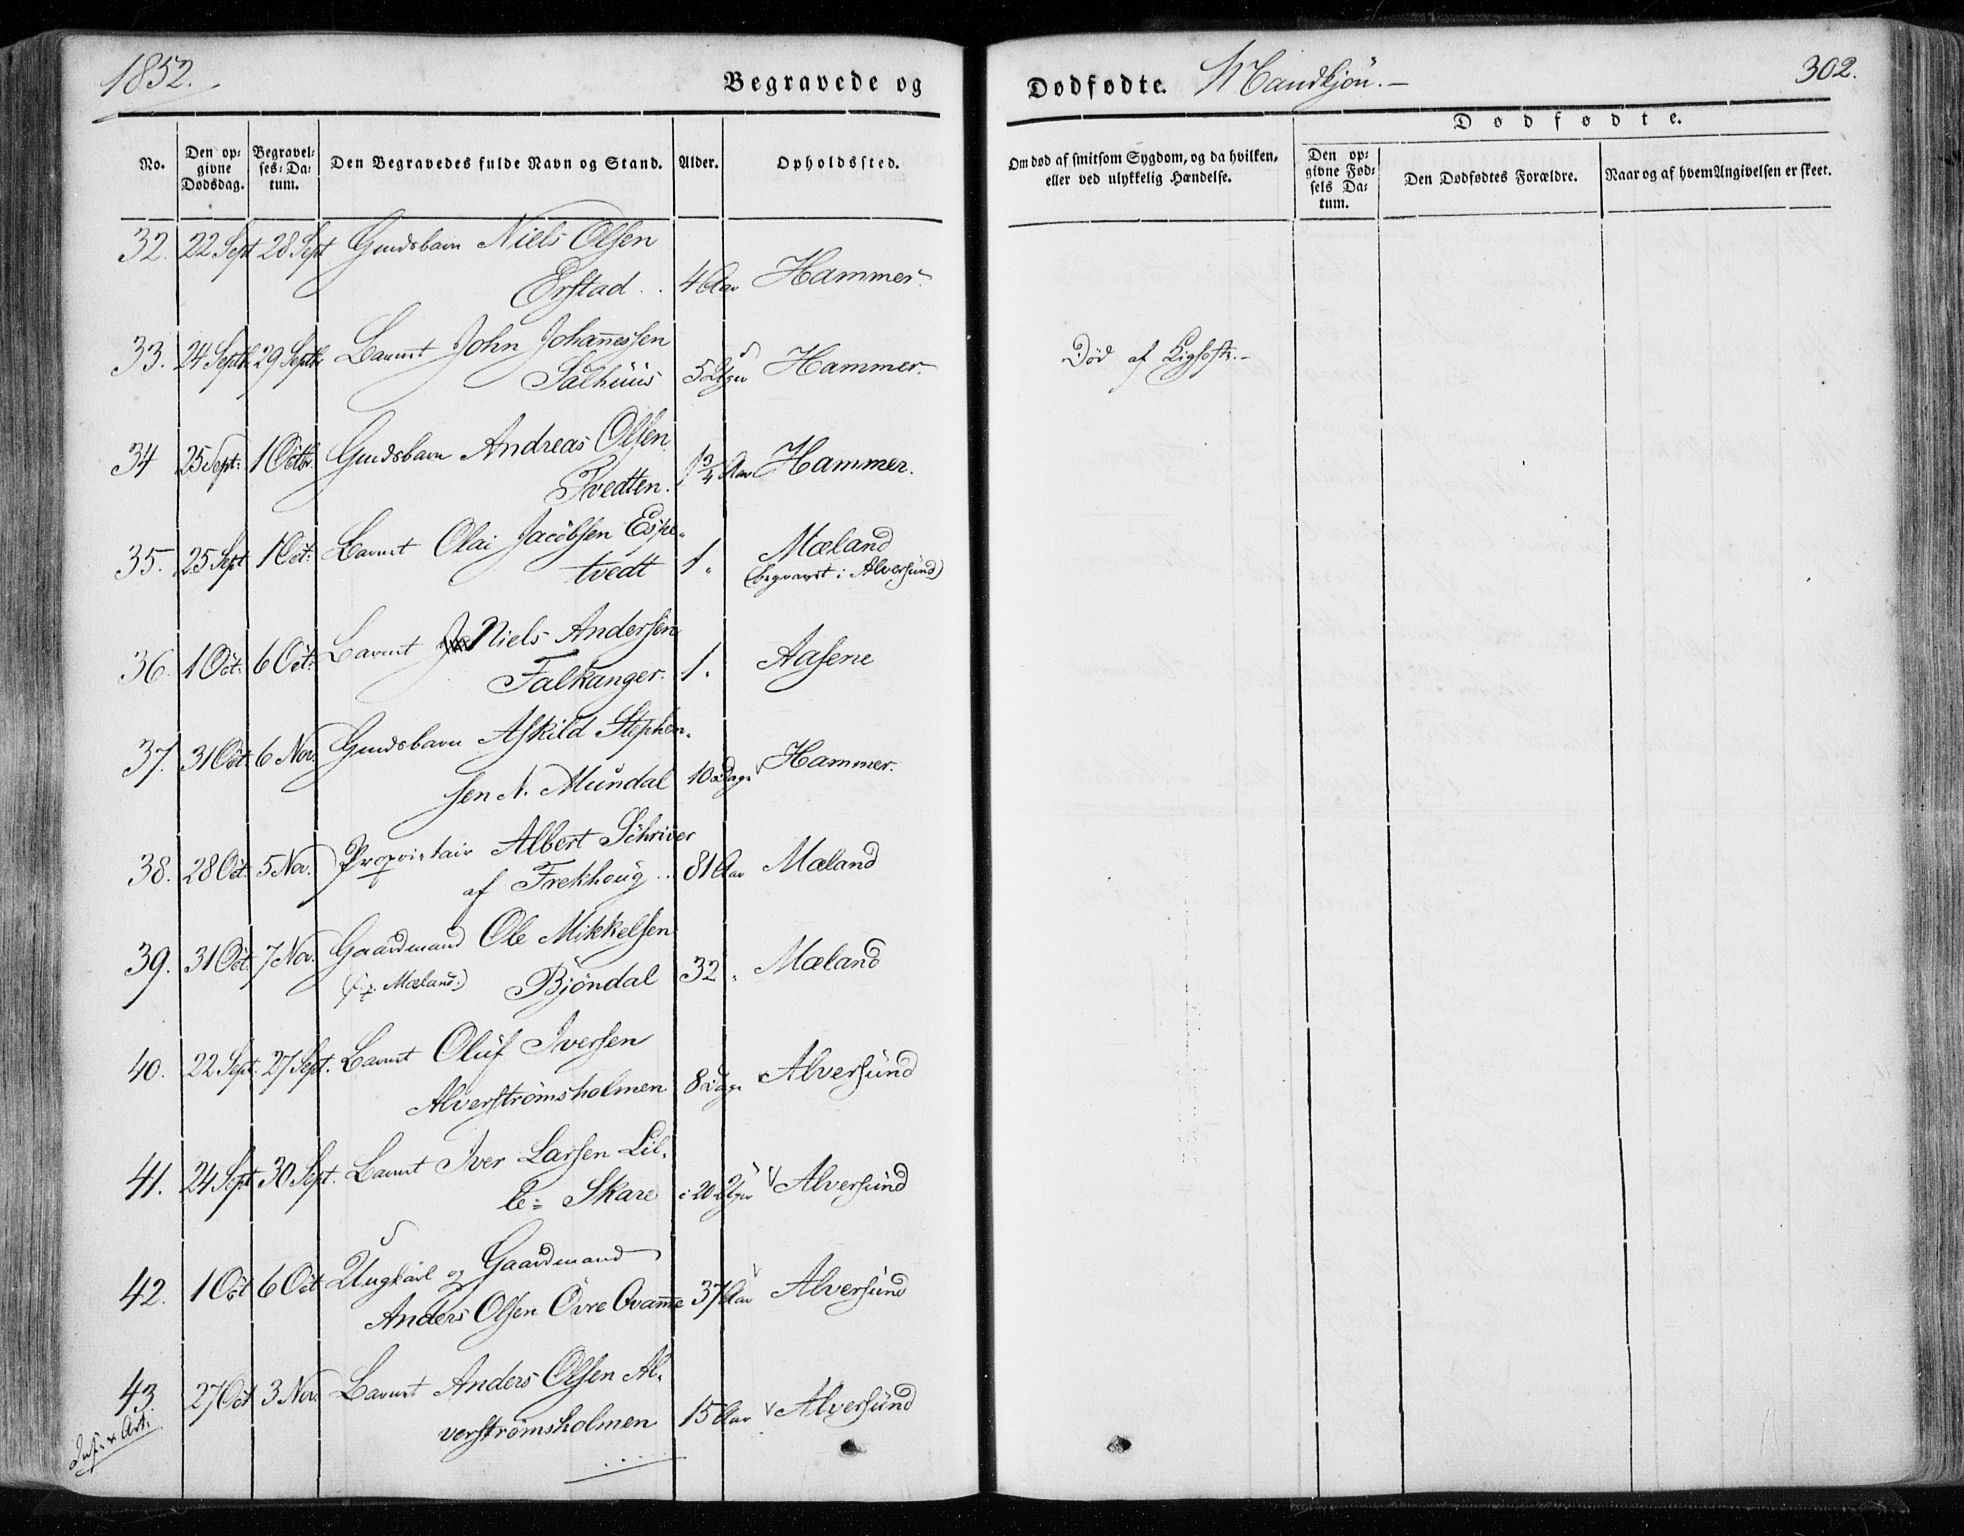 1852.
Begravede og
Dødfødte.
Mandkjøn.-
302.
No.
Den op-
givne
Dødsdag.
Begravel-
ses-Da-
tum.
Den Begravedes fulde Navn og Stand.
Alder.
Opholdssted.
Om død af smitsom Sygdom, og da hvilken,
eller ved ulykkelig Hændelse.
Dødfødte.
Den op-
givne Fød-
sels Da-
tum.
Den Dødfødtes Forældre.
Naar og af hvem Angivelsen er skeet.
32. 22 Sept 28 Sept Niels Olsen
Erstad .. 4 Aar Hammer.
33. 24 Septb. 29 Septb. Barnet John Johannessen
Død af Kighoste.-
Sälhuus 5 Uger Hammer.
34 25 Sept: 1 Octb. Andreas Olsen
Tvedten. 1 3/4 Aar Hammer.
35. 25 Sept 1 Oct: Barnet Olai Jacobsen Espe-
tvedt 1 " Mæland
(begravet i Alversund)
36. 1 Oct: 6 Oct: Barnet Niels Andersen
Falkanger. 1 " Aasene
37. 31 Oct. 6 Nov. Askild Stephen-
sen N. Mundal 10 Dage Hammer.
38. 28 Oct. 5 Nov. Proprietair Albert Schriver
af Frekhoug .. 81 Aar Mæland
39. 31 Oct. 7 Nov. Gaardmand Ole Mikkelsen
Mæland.) Bjöndal 32 " Mæland
40. 22 Sept. 27 Sept. Barnet Oluf Iversen
Alverströmsholmen 8 Dage Alversund
41. 24 Sept 30 Sept. Barnet Iver Larsen Lil-
le- Skare 20 Uger Alversund
42. 1 Oct 6 Oct Ungkarl og Gaardmand
Anders Olsen Övre Qvamme 37 Aar Alversund
43. 27 Oct 3 Nov. Barnet Anders Olsen Al-
verströmsholmen 15 Aar Alversund